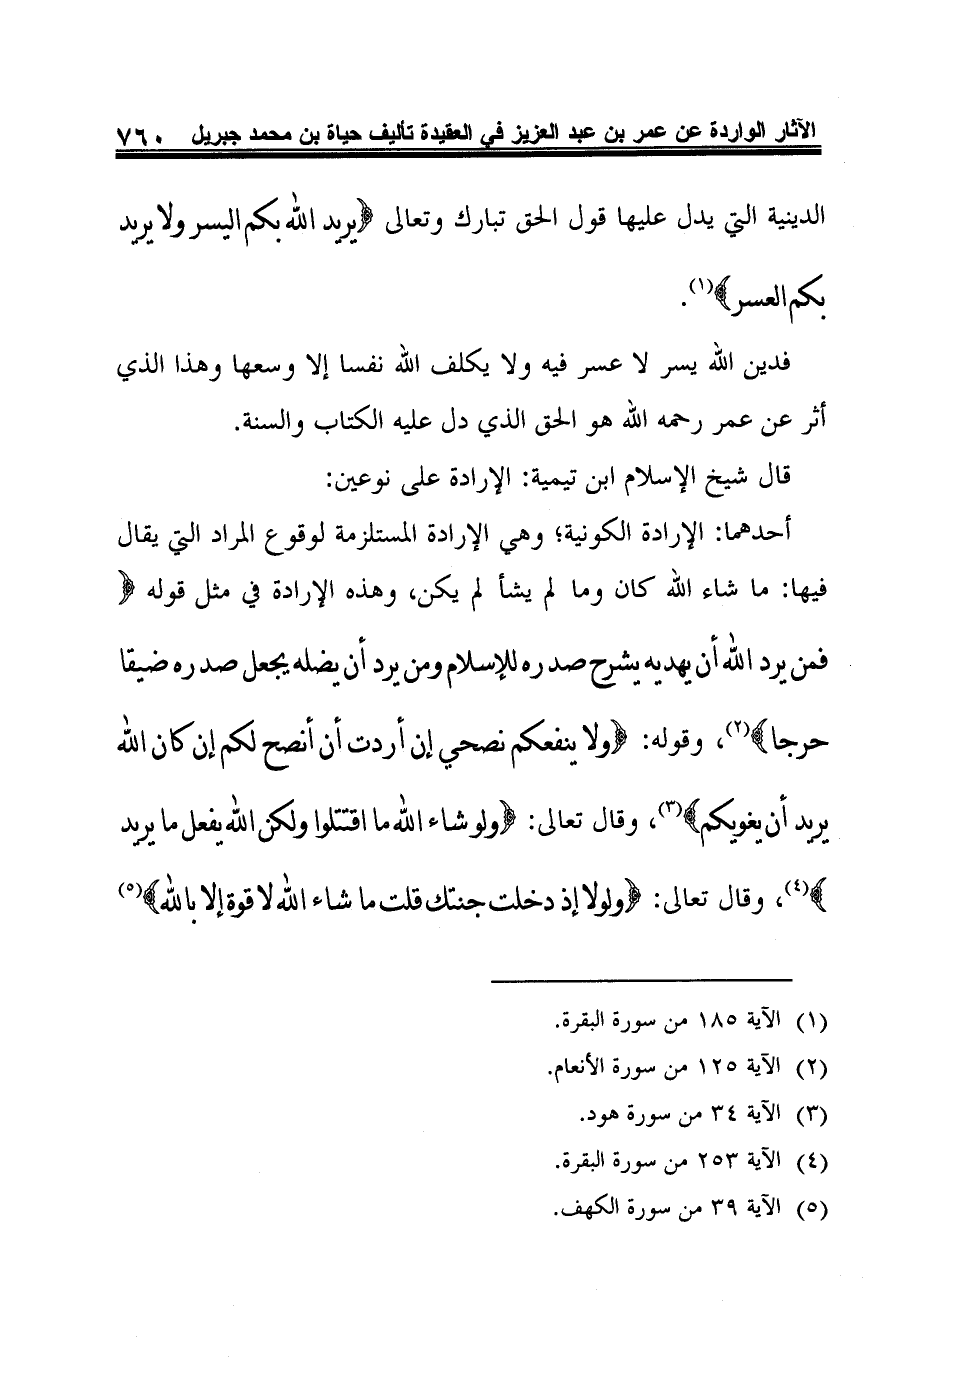 الآثار الواردة عن عمر بن عبد العزيز في العقيدة تأليف حياة بن محمد جبريل ٧٦٠
الدينية التي يدل عليها قول الحق تبارك وتعالى ﴿يريد الله بكم اليسر ولا يريد
بكم العسر﴾(١).
فدين الله يسر لا عسر فيه ولا يكلف الله نفسا إلا وسعها وهذا الذي
أثر عن عمر رحمه الله هو الحق الذي دل عليه الكتاب والسنة.
قال شيخ الإسلام ابن تيمية: الإرادة على نوعين:
أحدهما: الإرادة الكونية؛ وهي الإرادة المستلزمة لوقوع المراد التي يقال
فيها: ما شاء الله كان وما لم يشأ لم يكن، وهذه الإرادة في مثل قوله ﴿
فمن يرد الله أن يهديه يشرح صدره للإسلام ومن يرد أن يضله يجعل صدره ضيقا
حرجا﴾(٢)، وقوله: ﴿ولا ينفعكم نصحي إن أردت أن أنصح لكم إن كان الله
يريد أن يغويكم﴾(٣)، وقال تعالى: ﴿ولو شاء الله ما اقتتلوا ولكن الله يفعل ما يريد
﴾(٤)، وقال تعالى: ﴿ولولا إذ دخلت جنتك قلت ما شاء الله لا قوة إلا بالله﴾(٥)
(١) الآية ١٨٥ من سورة البقرة.
(٢) الآية ١٢٥ من سورة الأنعام.
(٣) الآية ٣٤ من سورة هود.
(٤) الآية ٢٥٣ من سورة البقرة.
(٥) الآية ٣٩ من سورة الكهف.